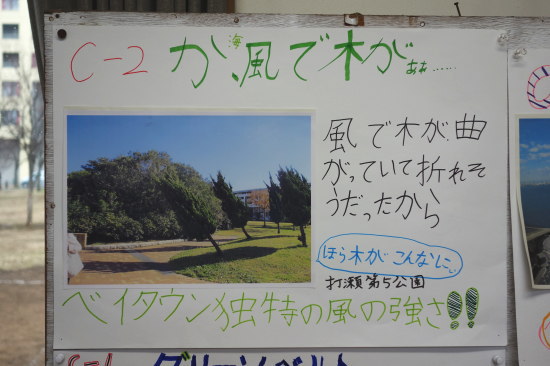 C-2 海が、風で木がぁぁ……
風で木が曲
がっていて折れそ
うだったから
ほら木がこんなに…
打瀬第5公園
ベイタウン独特の風の強さ!!
C-1 グリーンベルト